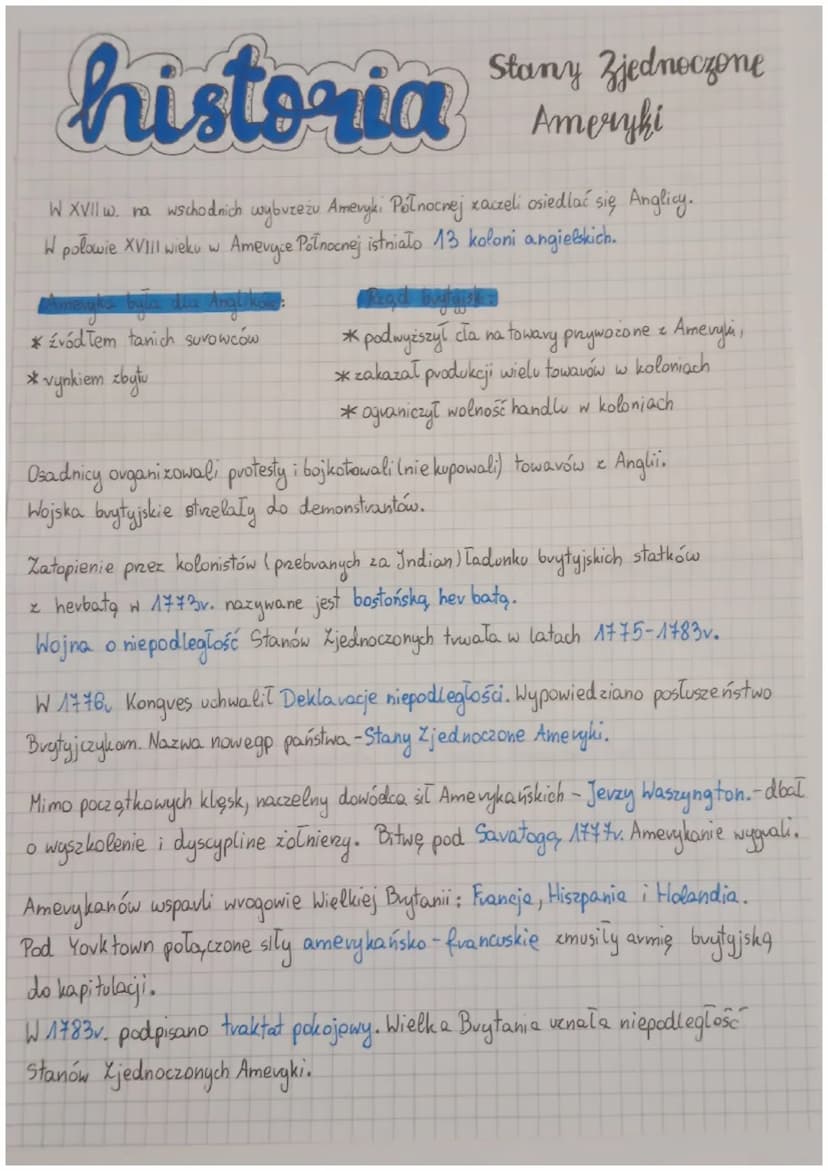 historia
Stany Zjednoczone
Ameryki
W XVII w. na wschodnich wybrzeżu Ameryki Północnej zaczeli osiedlać się Anglicy.
W połowie XVIII wieku w Ameryce Północnej istniało 13 koloni angielskich.
Ameryka była dla Anglików:
* źródłem tanich surowców
* rynkiem zbytu
Rząd brytyjski:
* podwyższył cła na towary przywożone z Ameryki,
* zakazał produkcji wielu towarów w koloniach
* ograniczył wolność handlu w koloniach
Osadnicy organizowali protesty i bojkotowali (nie kupowali) towarów z Anglii.
Wojska brytyjskie strzelały do demonstrantów.
Zatopienie przez kolonistów (przebranych za Indian) ładunku brytyjskich statków
z herbatą w 1773r. nazywane jest bostońską herbatą.
Wojna o niepodległość Stanów Zjednoczonych trwała w latach 1775-1783r.
W 1776r. Kongres uchwalił Deklaracje niepodległości. Wypowiedziano posłuszeństwo
Brytyjczykom. Nazwa nowegp państwa - Stany Zjednoczone Ameryki.
Mimo początkowych klęsk, naczelny dowódca sił Amerykańskich - Jerzy Waszyngton. - dbał
o wyszkolenie i dyscypline żołnierzy. Bitwę pod Saratogą 1777r. Amerykanie wygrali.
Amerykanów wsparli wrogowie Wielkiej Brytanii: Francja, Hiszpania i Holandia.
Pod Yorktown połączone siły amerykańsko-francuskie zmusiły armię brytyjską
do kapitulacji.
W 1783r. podpisano traktat pokojowy. Wielka Brytania uznała niepodległość
Stanów Zjednoczonych Ameryki.